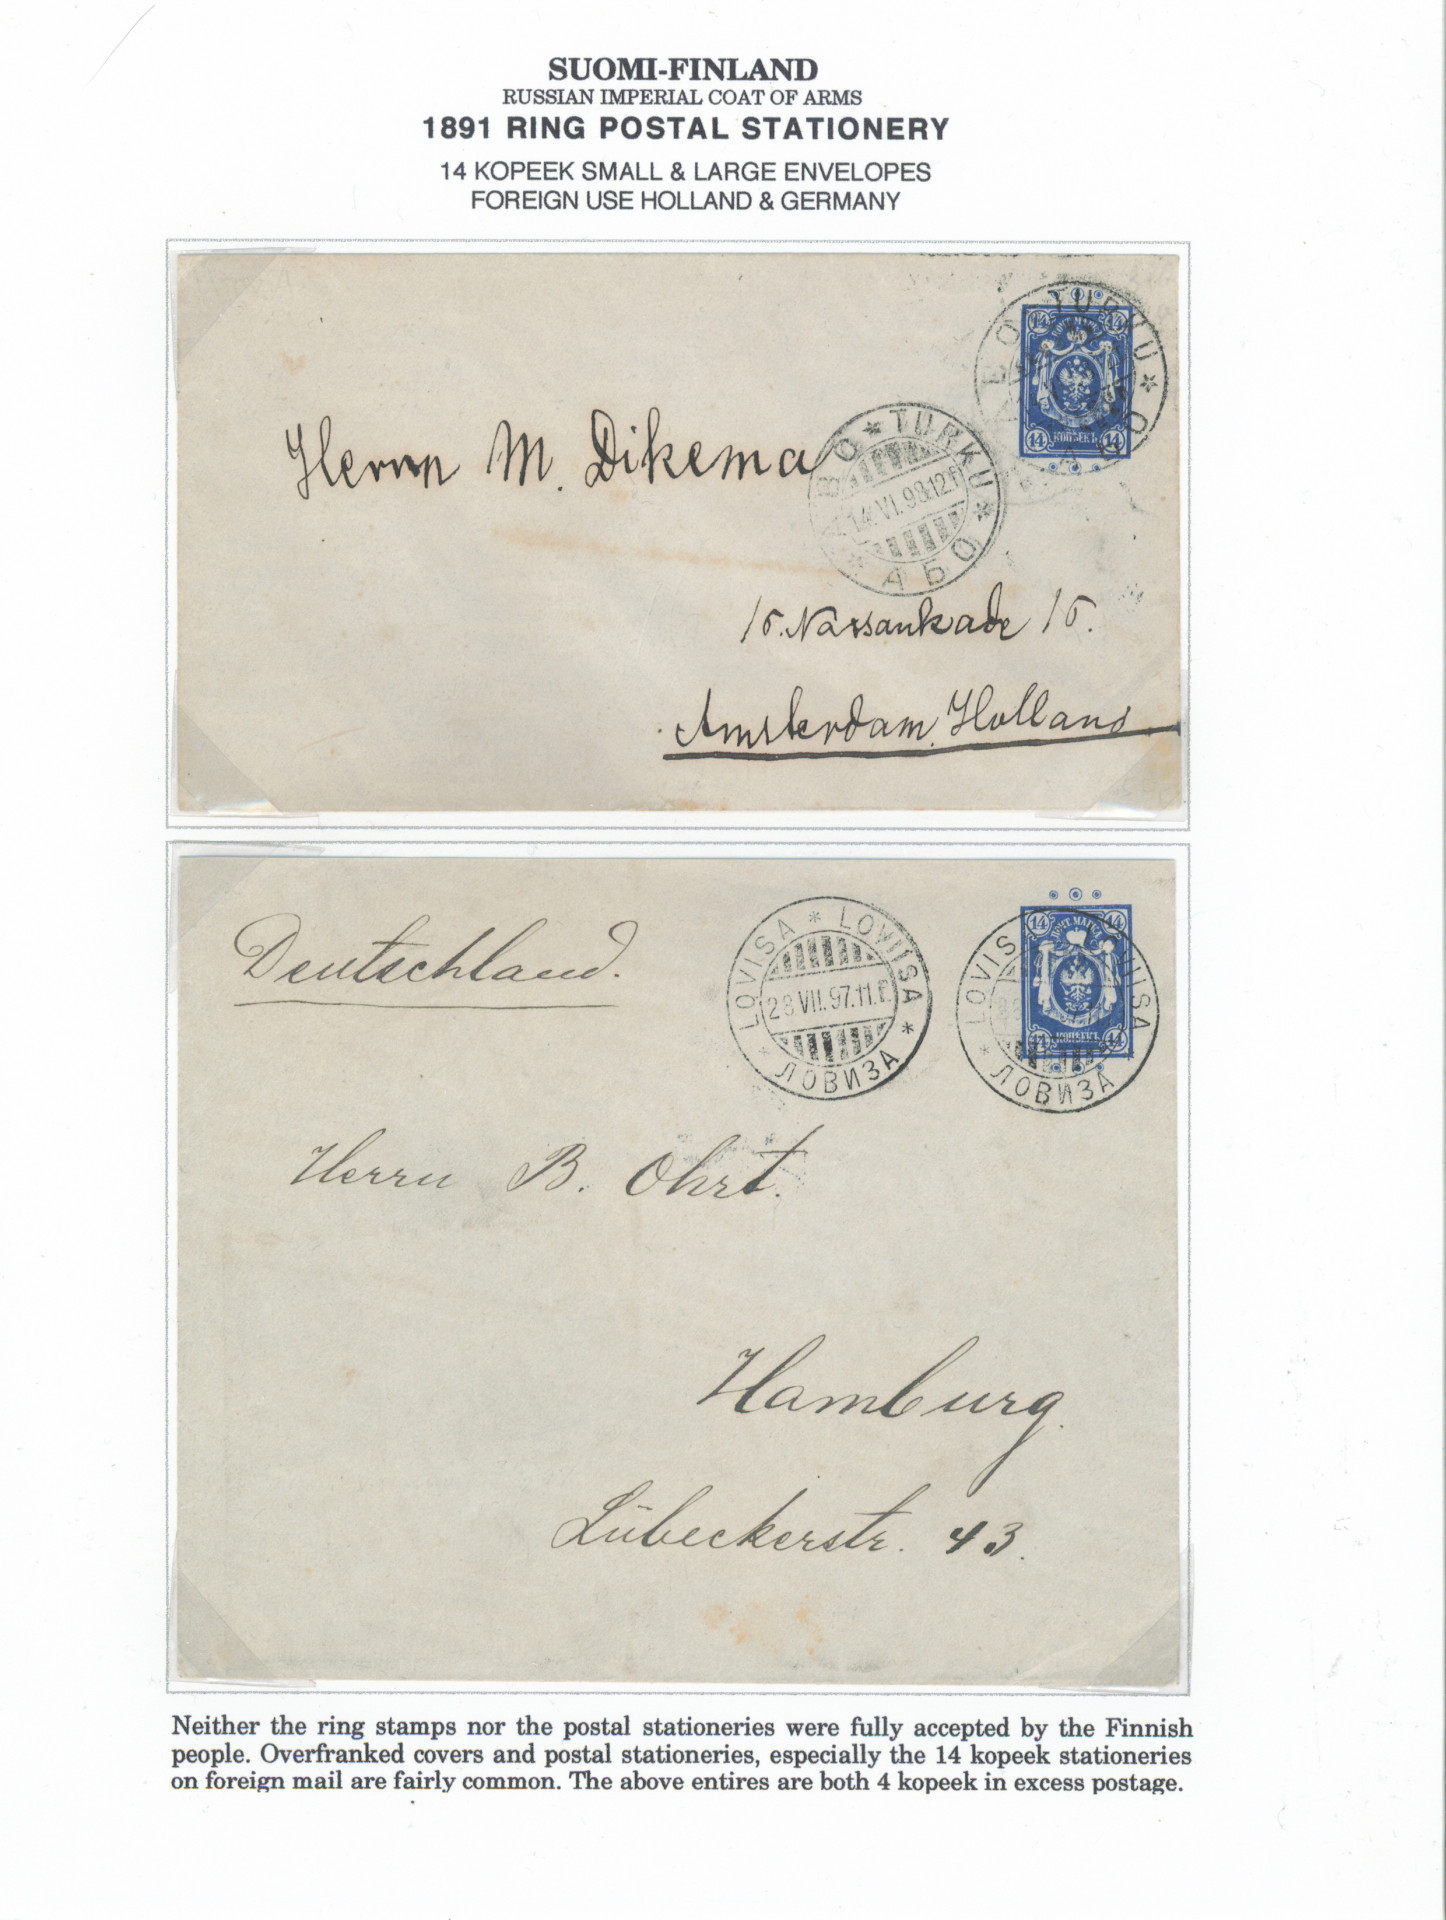 SUOMI-FINLAND
RUSSIAN IMPERIAL COAT OF ARMS
1891 RING POSTAL STATIONERY
14 KOPEEK SMALL & LARGE ENVELOPES
FOREIGN USE HOLLAND & GERMANY
14 14
14 КОПѢЕКЪ 14
TURKU * АБО
ÅBO * TURKU * АБО *
14.VI.98.12.F
Herrn M. Dikema
16. Nassaukade 16.
Amsterdam, Holland
14 ПОЧТ. МАРКА 14
14 КОПѢЕКЪ 14
LOVISA * LOVIISA * ЛОВИЗА *
28.VII.97.11.F.
LOVISA * LOVIISA * ЛОВИЗА
Deutschland.
Herrn B. Ohrt.
Hamburg.
Lübeckerstr. 43.
Neither the ring stamps nor the postal stationeries were fully accepted by the Finnish
people. Overfranked covers and postal stationeries, especially the 14 kopeek stationeries
on foreign mail are fairly common. The above entires are both 4 kopeek in excess postage.